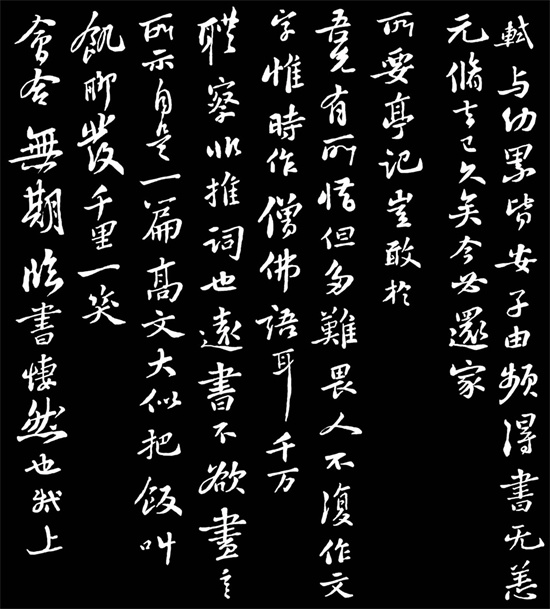 軾与幼累皆安子由頻得書无恙
元脩去已久矣今必還家
所要亭記豈敢於
吾兄有所惜但多難畏人不復作文
字惟時作僧佛語耳千万
體察非推詞也遠書不欲盡言
所示自是一篇高文大似把飯叫
飢聊發千里一笑
會合無期臨書悽然也軾上